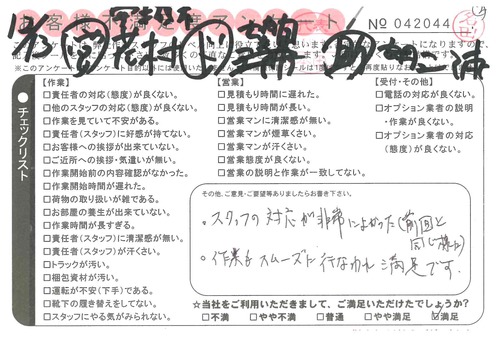 お客様不満足度アンケート
No 042044
チェックリスト
【作業】
□責任者の対応(態度)が良くない。
□他のスタッフの対応(態度)が良くない。
□作業を見ていて不安がある。
□責任者(スタッフ)に好感が持てない。
□お客様への挨拶が出来ていない。
□ご近所への挨拶・気遣いが無い。
□作業開始前の内容確認がなかった。
□作業開始時間が遅れた。
□荷物の取り扱いが雑である。
□お部屋の養生が出来ていない。
□作業時間が長すぎる。
□責任者(スタッフ)に清潔感が無い。
□責任者(スタッフ)が汗くさい。
□トラックが汚い。
□梱包資材が汚い。
□運転が不安(下手)である。
□靴下の履き替えをしてない。
□スタッフにやる気がみられない。
【営業】
□見積もり時間に遅れた。
□見積もり時間が長い。
□営業マンに清潔感が無い。
□営業マンが煙草くさい。
□営業マンが汗くさい。
□営業態度が良くない。
□営業の説明と作業が一致してない。
【受付・その他】
□電話の対応が良くない。
□オプション業者の説明
・作業が良くない。
□オプション業者の対応
(態度)が良くない。
その他、ご意見・ご要望等ありましたらお書き下さい。
・スタッフの対応が非常によかった(前回と
同じ様に)
・作業もスムーズに行なわれ満足です。
☆当社をご利用いただきまして、ご満足いただけたでしょうか?
□不満 □やや不満 □普通 □やや満足 ☑満足